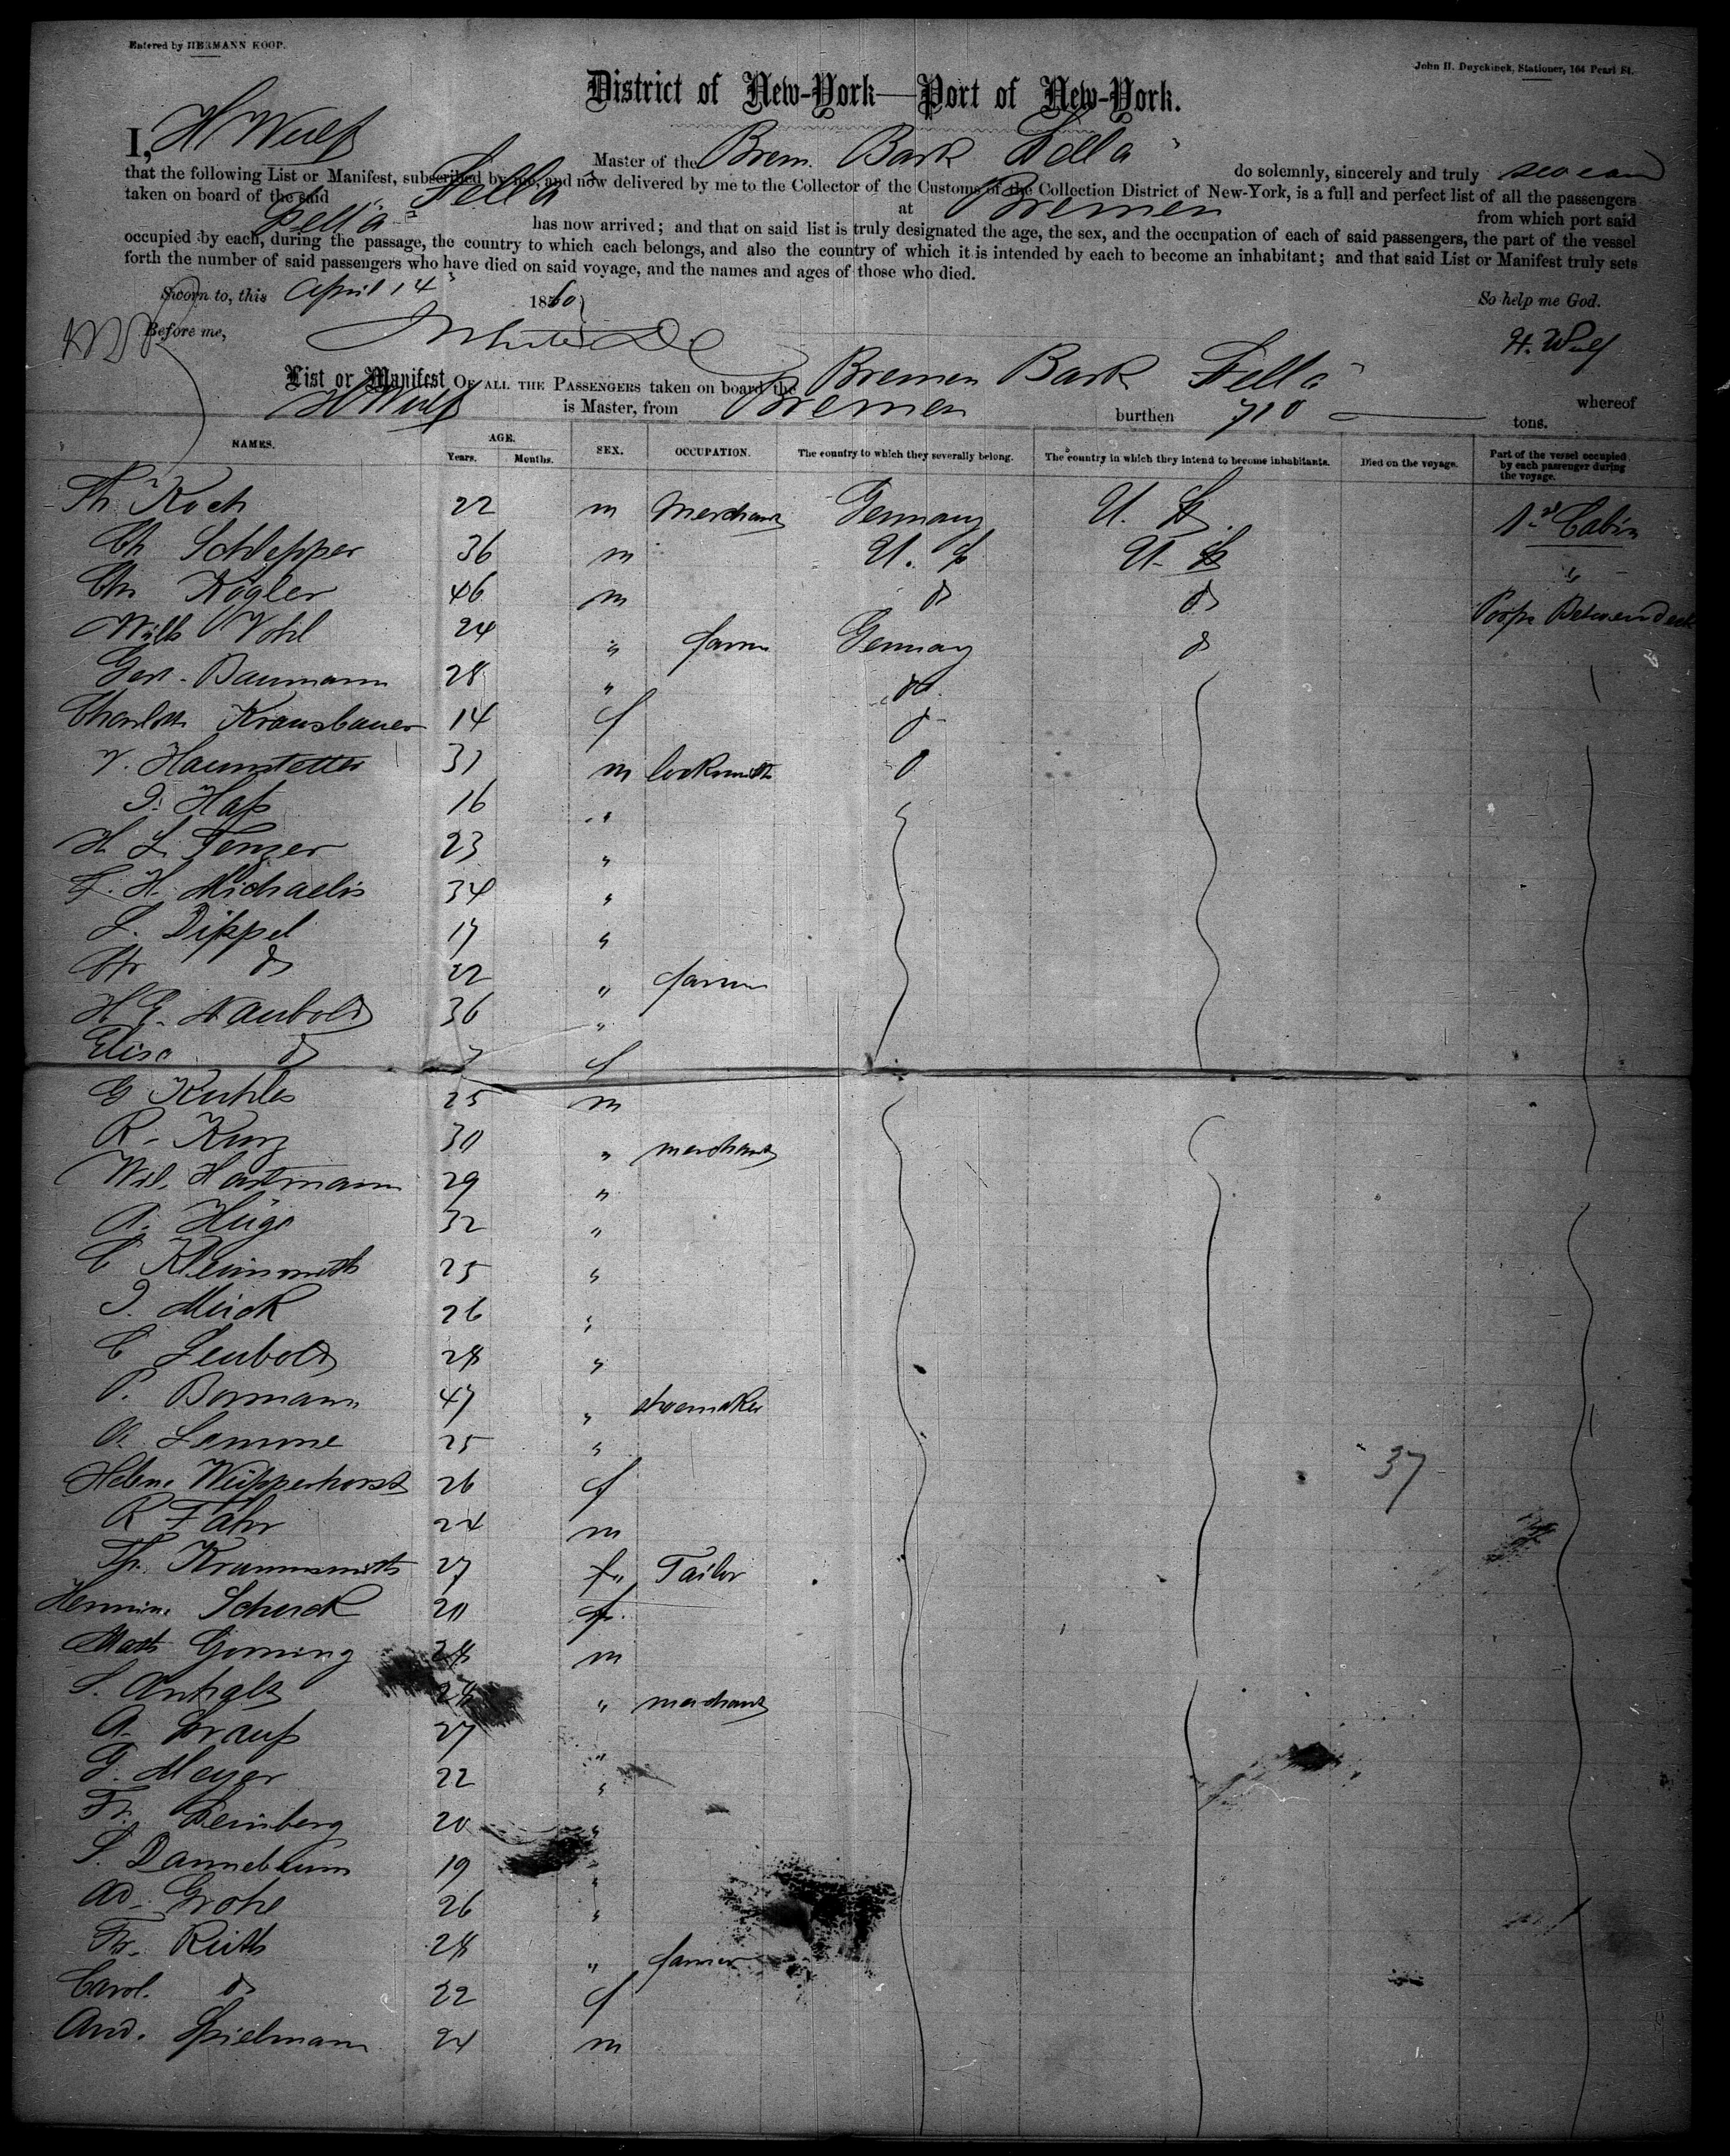 Entered by HERMANN KOOP.
John H. Duyckinck, Stationer, 164 Pearl St.
District of New-York—Port of New-York.
I, H Wulf Master of the Brem. Bark Fella do solemnly, sincerely and truly swear
that the following List or Manifest, subscribed by me, and now delivered by me to the Collector of the Customs of the Collection District of New-York, is a full and perfect list of all the passengers
taken on board of the said Fella at Bremen from which port said
Fella has now arrived; and that on said list is truly designated the age, the sex, and the occupation of each of said passengers, the part of the vessel
occupied by each, during the passage, the country to which each belongs, and also the country of which it is intended by each to become an inhabitant; and that said List or Manifest truly sets
forth the number of said passengers who have died on said voyage, and the names and ages of those who died.
Sworn to, this April 14 1860 So help me God.
Before me, H. Wulf
List or Manifest OF ALL THE PASSENGERS taken on board the Bremen Bark Fella whereof
H Wulf is Master, from Bremen burthen 710 tons.
NAMES. AGE. Years. Months. SEX. OCCUPATION. The country to which they severally belong. The country in which they intend to become inhabitants. Died on the voyage. Part of the vessel occupied by each passenger during the voyage.
Th. Koch 22 m Merchant Germany U. S. 1st Cabin
Ch Schlepper 36 m U. S U. S "
Chr Kögler 46 m do do Poop Between deck
Wilh Vohl 24 " farm Germany do
Ger. Baumann 28 " do
Charloth Krausbauer 14 f do
V. Haunstetter 31 m locksmith
J. Haß 16 "
H L Fenzer 23 "
F. H. Michaelis 34 "
L. Dippel 17 "
Chr do 22 " farmer
H E. Naubold 36 "
Elise do 7 f
G Kuhles 25 m
R. Kurz 30 " merchant
Wil. Hartmann 29 "
A. Hüge 32 "
C Kleinsmith 25 "
J. Mück 26 "
C Leubold 28 "
P. Bormann 47 " shoemaker
A. Lamme 25 "
Helene Wüpperhorst 26 f 37
R Fahr 24 m
Th. Krummsmith 27 f " Tailor
Hermine Schuck 20 f.
Math Gorning 28 m
S. Anhalt 28 " merchant
A. Strauß 27 "
G. Meyer 22 "
Fr. Steinberg 20 "
S. Dannebaum 19 "
Ad. Grohe 26 "
Fr. Rüth 28 " farmer
Carol. do 22 f
And. Spielmann 24 m